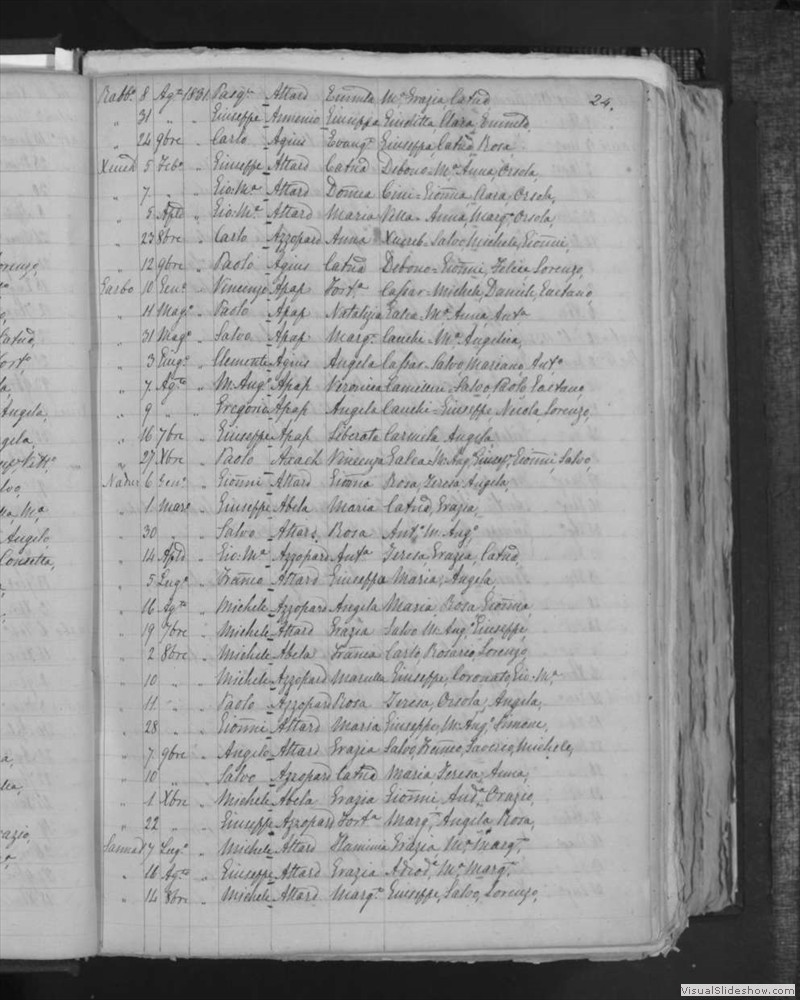 24.
Rabbº 8 Agto 1831. Pasqe Attard Eduvila Mª Grazia, Catnã
„ 31 „ „ Giuseppe Armenio Giuseppa Giuditta Clara
„ 24 9bre „ Carlo Agius Evangª Giuseppa, Catnã Rosa
5 Febº „ Giuseppe Attard Catnã Debono Mª Anna, Orsola,
„ 7 „ „ Gio: Mª Attard Domca Cini Giõnna Clara, Orsola,
„ 5 Aple „ Gio: Mª Attard Maria Vella Anna, Margª Orsola,
„ 23 8bre „ Carlo Azzopard Anna Xuereb Salvo Michele, Giõnni,
„ 12 9bre „ Paolo Agius Catnã Debono Giõnni, Felice Lorenzo,
Garbo 10 Genº „ Vincenzo Apap Fortª Cassar Michele, Daniele, Gaetano
„ 11 Magº „ Paolo Apap Natalizia Galea Mª Anna, Antª
„ 31 Magº „ Salvo Apap Margª Cauchi Mª Angelica,
„ 3 Giugº „ Clemente Agius Angela Cassar Salvo Mariano, Antº
„ 7 Agto „ M. Angº Apap Veronica Camilleri Salvo, Paolo Gaetano,
„ 9 „ „ Gregorio Apap Angela Cauchi Giuseppe Nicola, Lorenzo,
„ 16 7bre „ Giuseppe Apap Liberata Carmela Angela
„ 27 Xbre „ Paolo Axach Vincenza Galea M. Angº Giusepe, Giõnni, Salvo,
Nadur 6 Genº „ Giõnni Attard Giõnna Rosa, Teresa Angela,
„ 1 Marº „ Giuseppe Abela Maria Catnã, Grazia,
„ 30 „ „ Salvo Attard Rosa Antº M. Angº
„ 14 Aple „ Gio: Mª Azzopard Antª Teresa Grazia, Catnã,
„ 5 Lugº „ Franco Attard Giuseppa Maria, Angela,
„ 16 Agto „ Michele Azzopard Angela Maria Rosa Giõnna
„ 19 7bre „ Michele Attard Grazia Salvo M. Angº Giuseppe,
„ 2 8bre „ Michele Abela Franca Carlo Rosario, Lorenzo,
„ 10 „ „ Michele Azzopard Marulla Giuseppe, Coronato, Gio: Mª
„ 11 „ „ Paolo Azzopard Rosa Teresa, Orsola, Angela,
„ 28 „ „ Giõnni Attard Maria Giuseppe, M. Angº Simone,
„ 7 9bre „ Angelo Attard Grazia Salvo Saverio, Michele,
„ 10 „ „ Salvo Azzopard Catnã Maria Teresa, Anna,
„ 1 Xbre „ Michele Abela Grazia Giõnni, Andª Orazio,
„ 22 „ „ Giuseppe Azzopard Fortª Margª Angela Rosa,
Sannat 7 Lugº „ Michele Attard Flaminia Grazia Mª Margª
„ 10 Agto „ Giuseppe Attard Grazia Adeodª Mª Margª
„ 14 8bre „ Michele Attard Margª Giuseppe, Salvo, Lorenzo,
VisualSlideshow.com